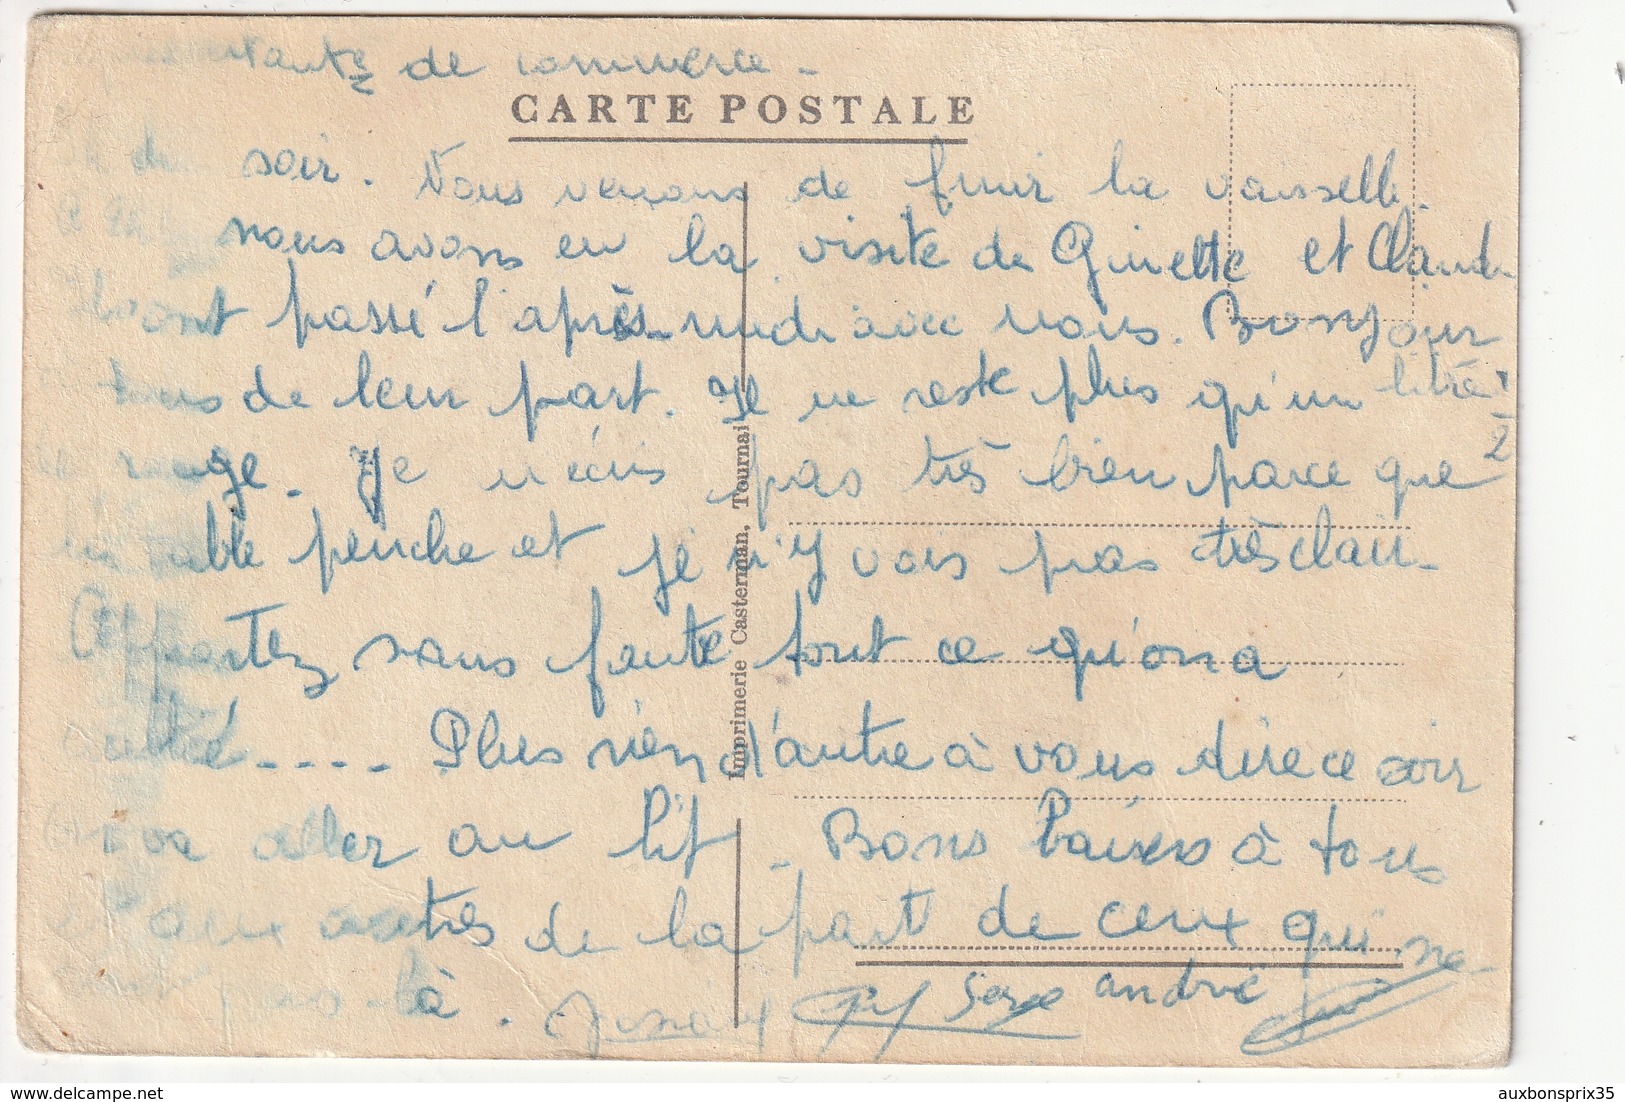 de commerce -
CARTE POSTALE
du soir. Nous venons de finir la vaisselle.
nous avons eu la visite de Ginette et Claude
Ils ont passé l'après-midi avec nous. Bonjour
à tous de leur part. Il ne reste plus qu'un litre
2
rouge. Je n'écris pas très bien parce que
la table penche et je n'y vois pas très clair -
Apportez sans faute tout ce qu'on a
oublié - - - - Plus rien d'autre à vous dire ce soir
On va aller au lit - Bons baisers à tous
et aux autres de la part de ceux qui ne
sont pas là. Serge andré
Imprimerie Casterman, Tournai
auxbonsprix35